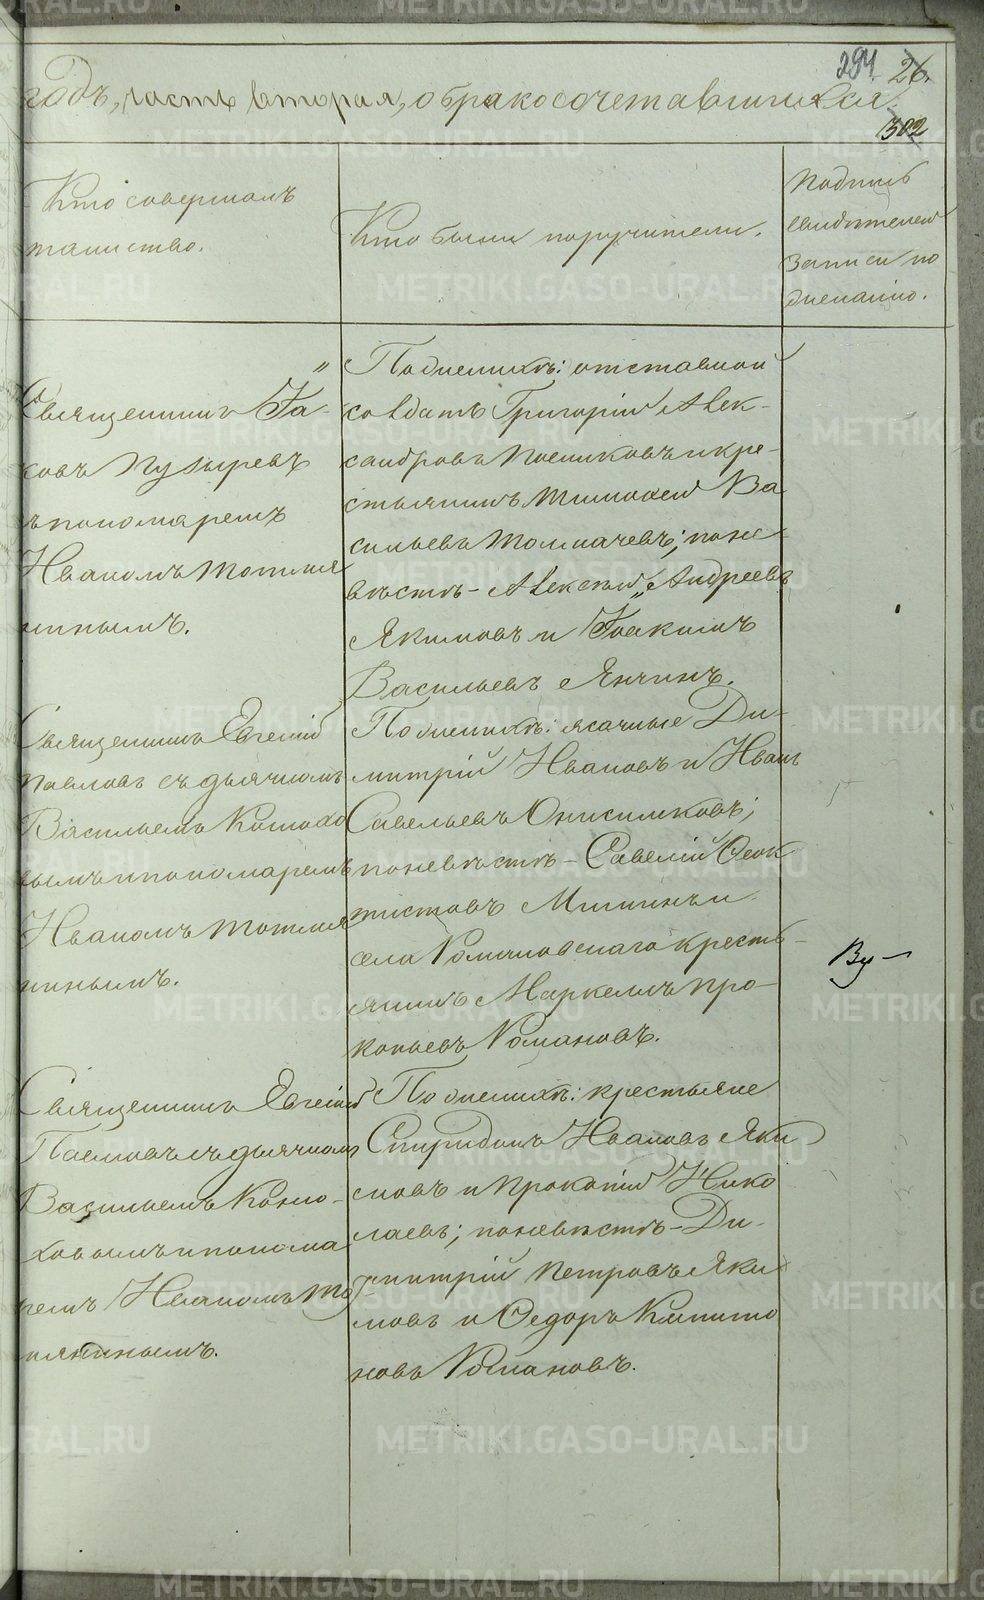 294 26.
годъ, часть вторая, о бракосочетавшихся.
302
Кто совершалъ
таинство.
Кто были поручители.
Подпись
свидѣтелей
записи по
желанію.
Священникъ Іа-
ковъ Пузыревъ
съ пономаремъ
Иваномъ Тотмя
нинымъ.
По женихѣ: отставной
солдатъ Григорій Алек-
сандровъ Посниковъ и кре-
стьянинъ Тимофей Ва
сильевъ Толмачевъ; по не
вѣстѣ - Алексѣй Андреевъ
Якимовъ и Іоакимъ
Васильевъ Янчинъ.
Священникъ Евгеній
Павловъ съ дьячкомъ
Васильемъ Конюхо
вымъ и пономаремъ
Иваномъ Тотмя
нинымъ.
По женихѣ: ясачные Ди-
митрій Ивановъ и Иванъ
Савельевъ Онисимковъ;
по невѣстѣ - Савелій Ѳеок
тистовъ Мишинъ и
села Романовскаго кресть-
янинъ Маркелъ Про-
копьевъ Романовъ.
Священникъ Евгеній
Павловъ съ дьячкомъ
Васильемъ Коню-
ховымъ и понома
ремъ Иваномъ Тот
мянинымъ.
По женихѣ: крестьяне
Спиридонъ Ивановъ Яки
мовъ и Прокопій Нико
лаевъ; по невѣстѣ - Ди-
митрій Петровъ Яки
мовъ и Ѳедоръ Капито
новъ Романовъ.
METRIKI.GASO-URAL.RU